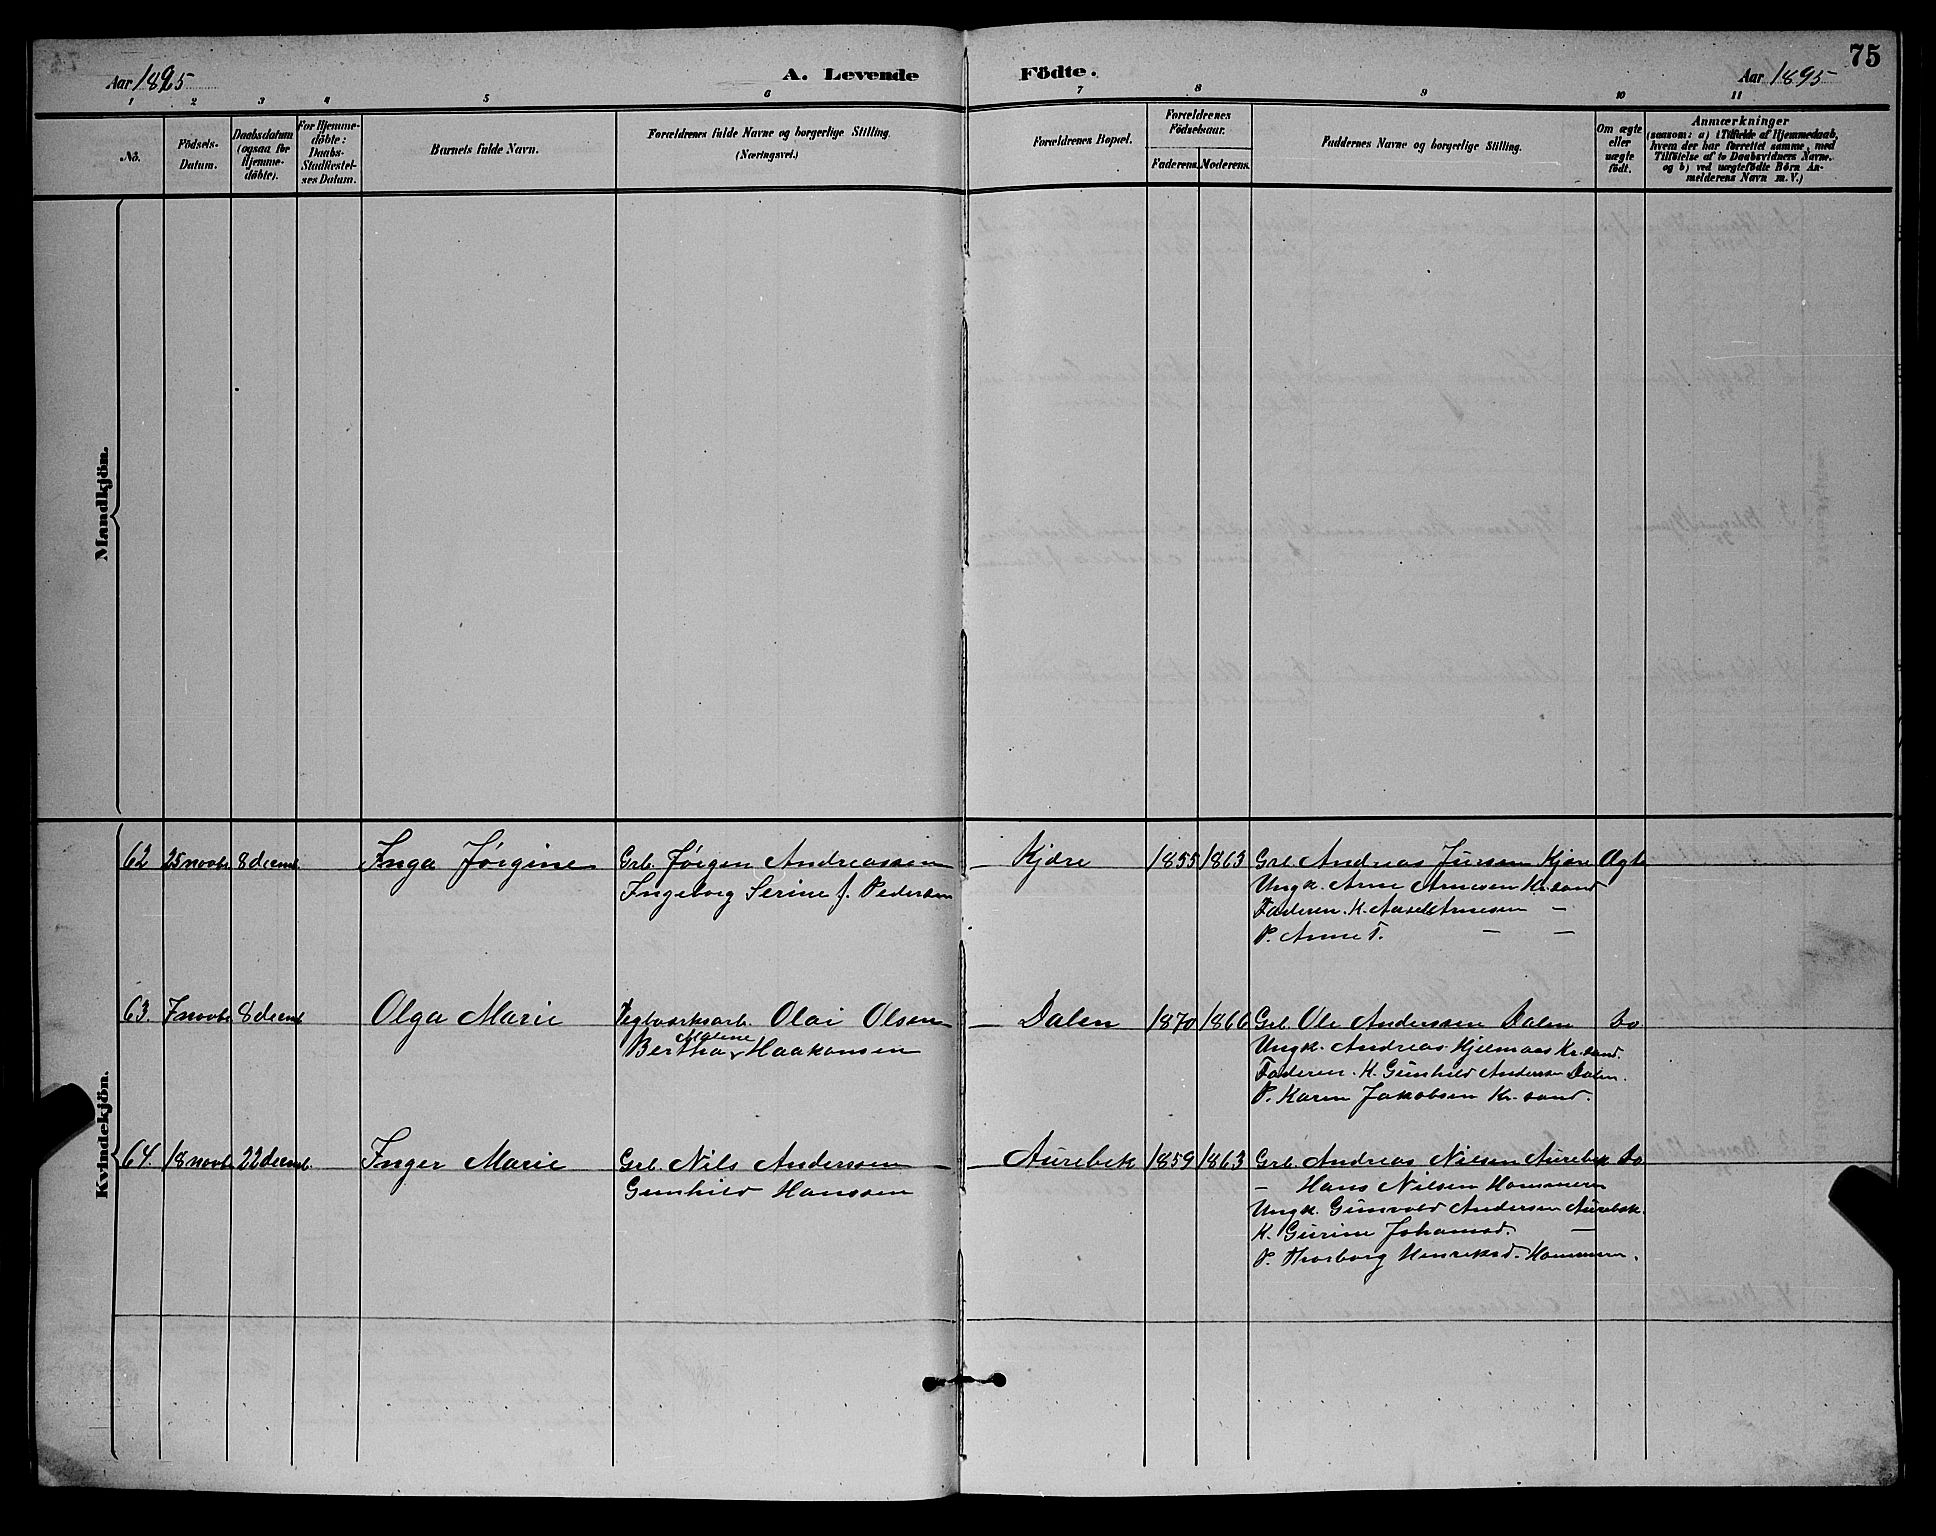 75
Aar 1895 A. Levende Födte. Aar 1895
1 2 3 4 5 6 7 8 9 10 11
No.
Födsels-
Datum.
Daabsdatum
(ogsaa for
Hjemme-
döbte).
For Hjemme-
döbte:
Daabs-
Stadfæstel-
ses Datum.
Barnets fulde Navn.
Forældrenes fulde Navne og borgerlige Stilling.
(Næringsvei.)
Forældrenes Bopæl.
Forældrenes
Födselsaar.
Faderens. Moderens.
Faddernes Navne og borgerlige Stilling.
Om ægte
eller
uægte
födt.
Anmærkninger
(saasom: a) i Tilfælde af Hjemmedaab,
hvem der har forrettet samme, med
Tilföielse af to Daabsvidners Navne,
og b) ved uægtefödte Börn An-
melderens Navn m. V.)
Mandkjön.
Kvindekjön.
62 25 novbr 8 decmb Inga Jörgine Grb. Jörgen Andreassen — Kjære 1855 1863 Grb. Andreas Kjære Ægte
Ingeborg Serine f. Pedersen Ungk. Arne Arnesen Kr.sand
Faderen. K. Arnesen —
P. Anne T. — —
63. 7 novbr 8 decmb Olga Marie Teglværksarb. Olai Olsen — Dalen 1870 1866 Grb. Ole Anderssen Dalen Do
Bertha Malene Haakonsen Ungk. Andreas Kr.sand.
Faderen. K. Gunhild Andersen Dalen.
P. Karen Jakobsen Kr.sand.
64. 18 novbr 22 decmb. Inger Marie Grb. Nils Anderssen — Aurebek 1859 1863 Grb. Andreas Nilsen Aurebek Do
Gunhild Hanssen — Hans Nilsen Hommeren
Ungk. Gunvald Andersen Aurebek.
K. Gurine Johansd. —
P. Thorborg Henriksd. Hommeren.